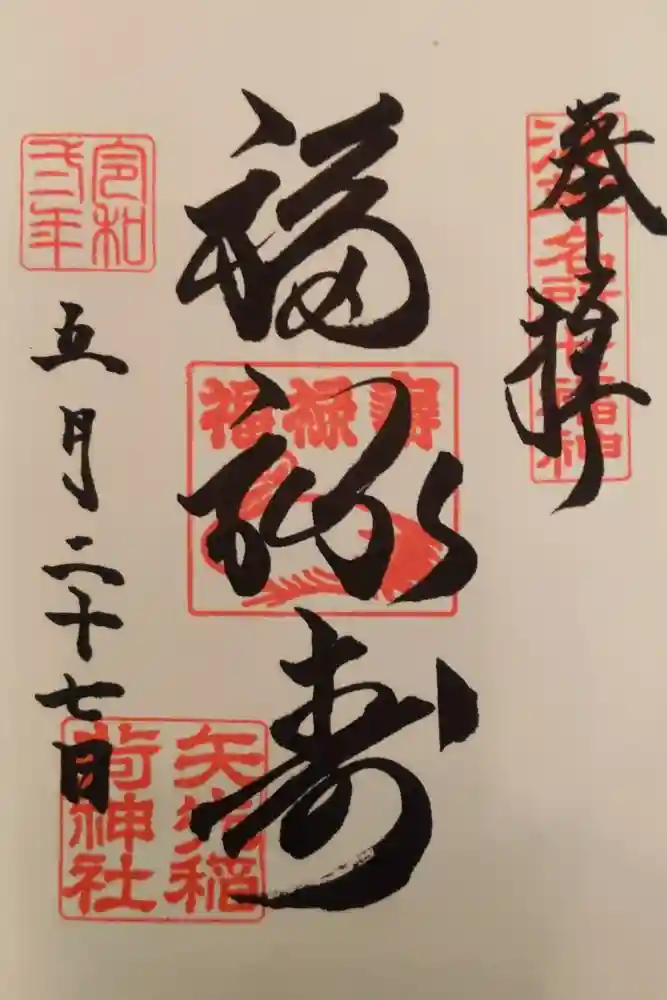 奉拝
浅草名所七福神
福禄寿
福禄壽
令和
弐年
五月二十七日
矢先稲
荷神社